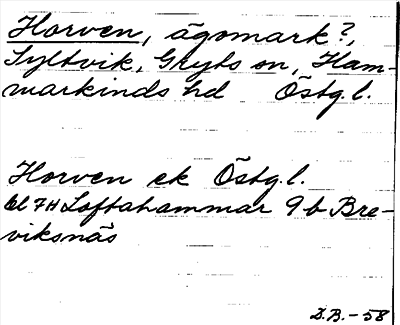 Horven, ägomark?,
Syltvik, Gryts sn, Ham-
markinds hd Östg.l.
Horven ek Östg.l.
bl 7H Loftahammar 9 b Bre-
viksnäs
D.B.-58